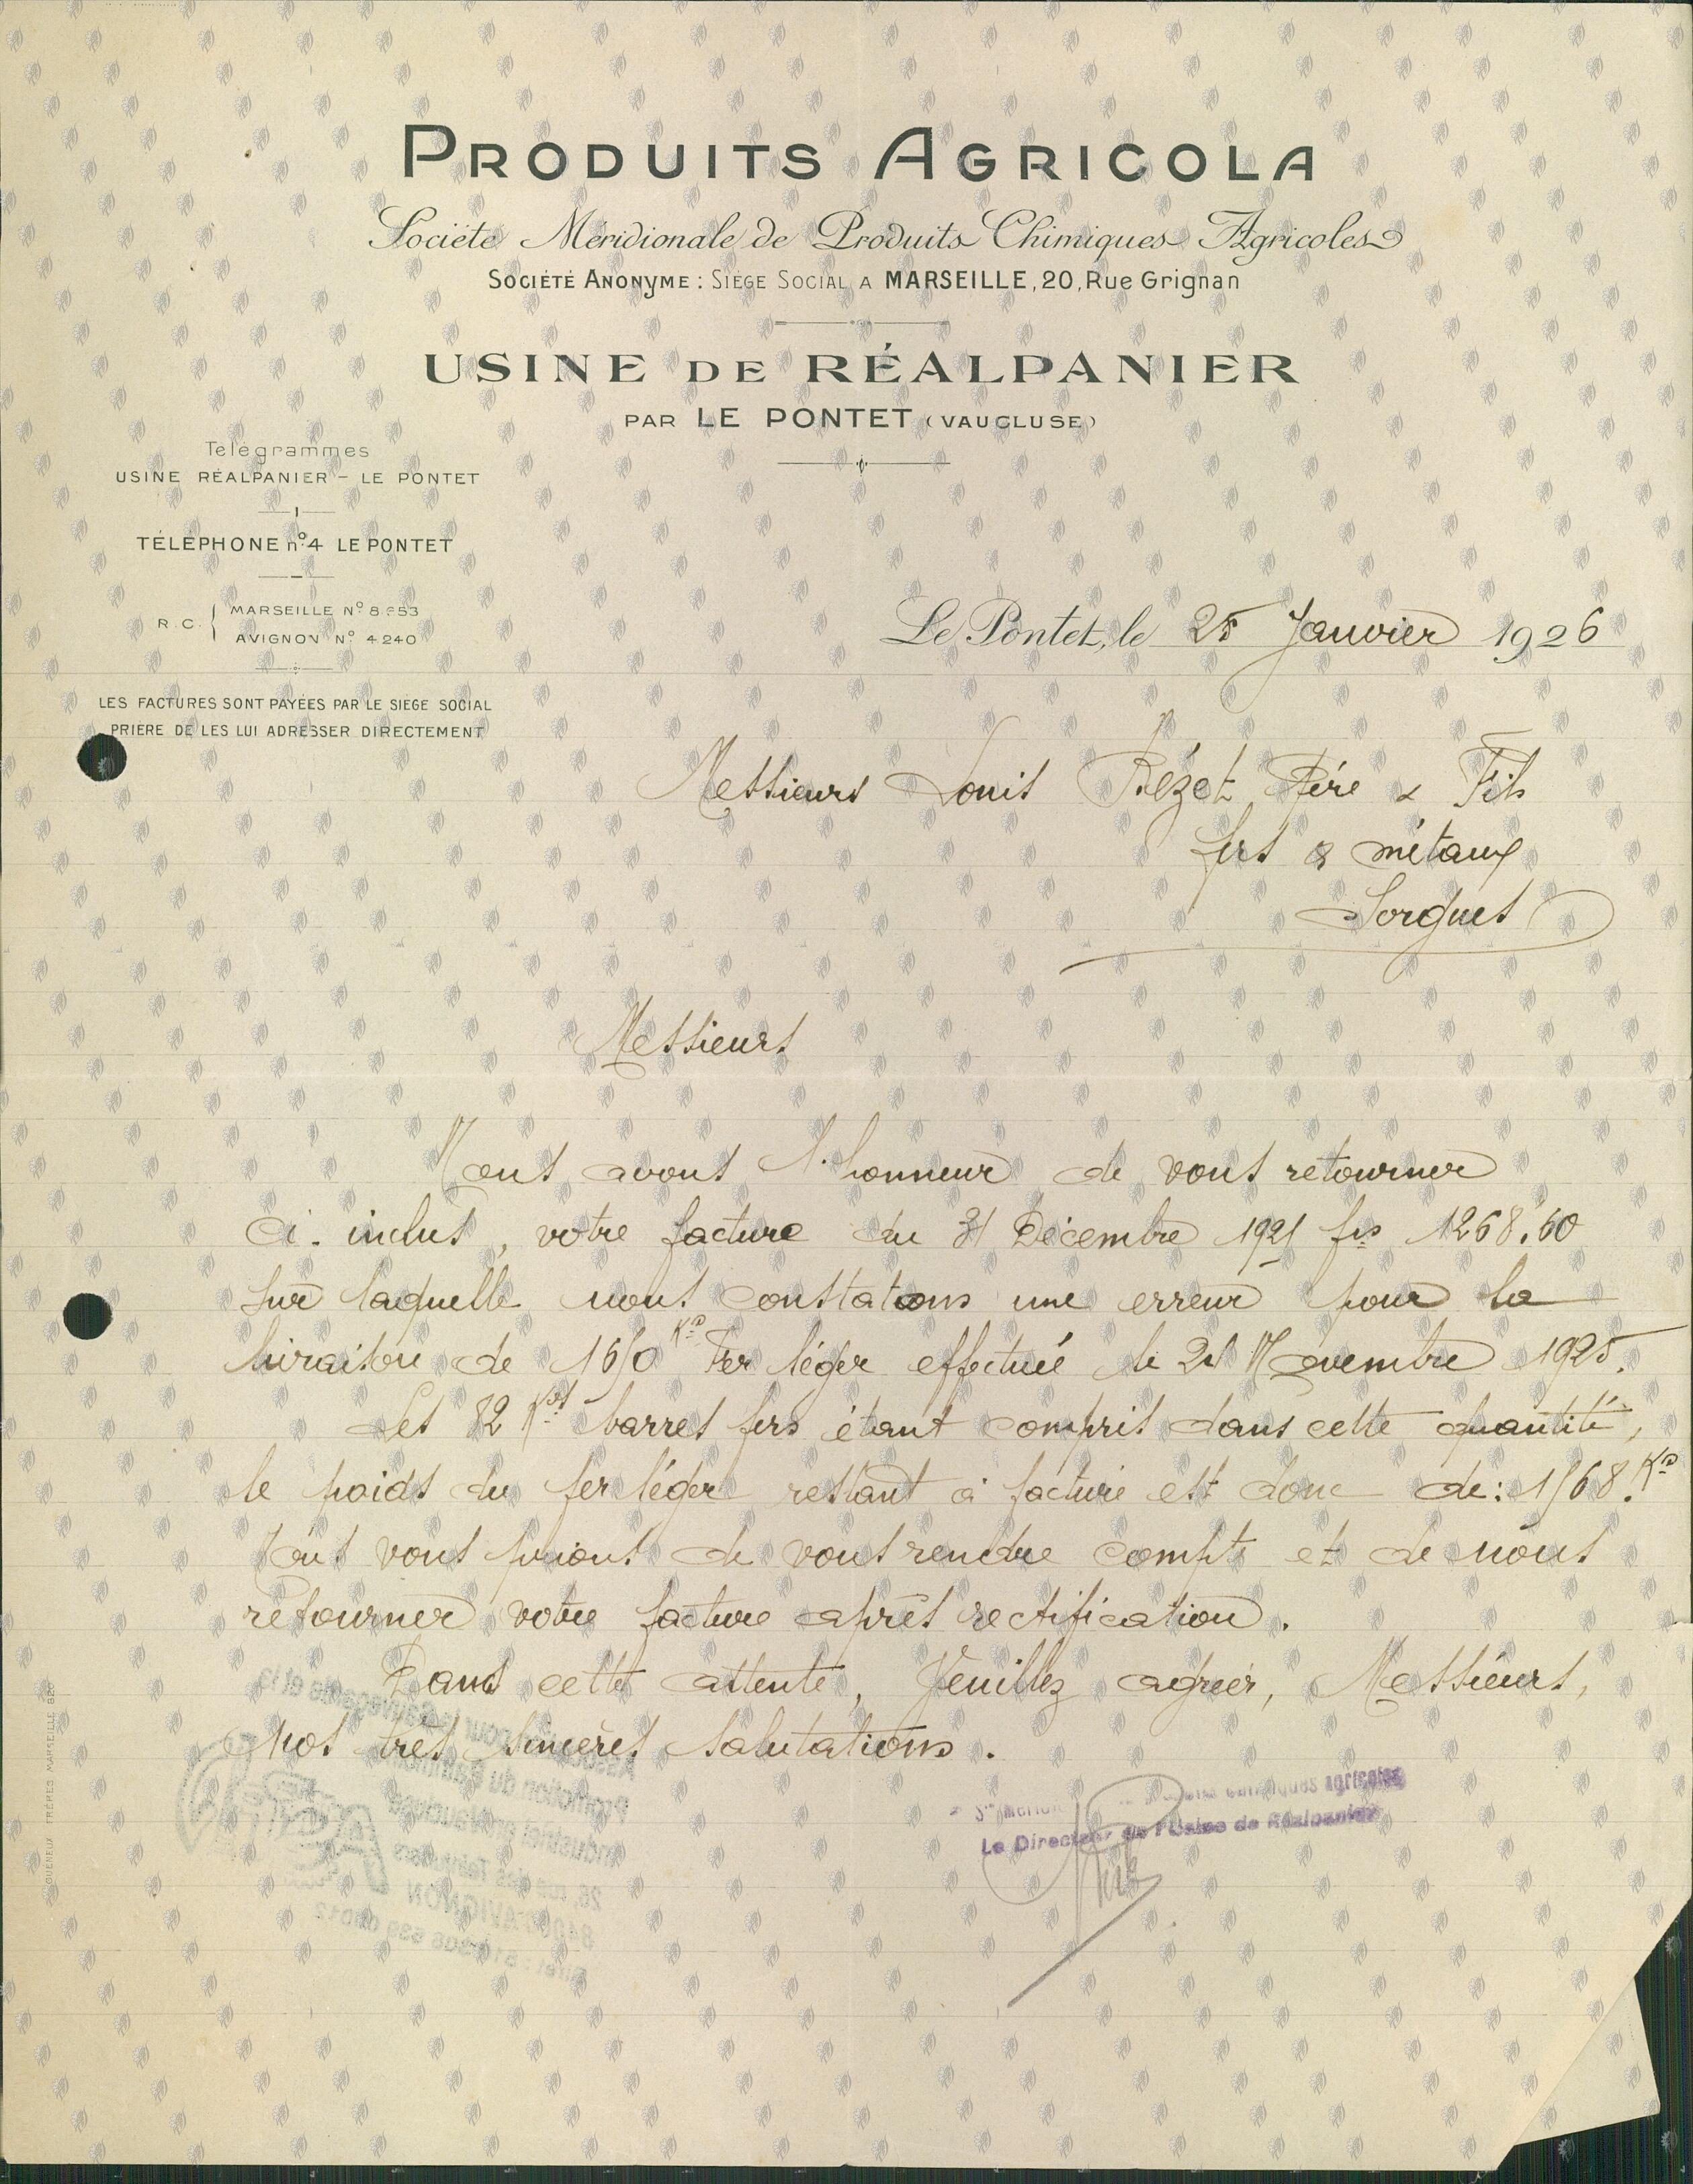 PRODUITS AGRICOLA
Société Méridionale de Produits Chimiques Agricoles
SOCIÉTÉ ANONYME : SIÈGE SOCIAL A MARSEILLE, 20, Rue Grignan
USINE DE RÉALPANIER
PAR LE PONTET (VAUCLUSE)
Télégrammes
USINE RÉALPANIER - LE PONTET
TÉLÉPHONE nº 4 LE PONTET
R.C. MARSEILLE Nº
AVIGNON Nº 4240
LES FACTURES SONT PAYÉES PAR LE SIÈGE SOCIAL
PRIÈRE DE LES LUI ADRESSER DIRECTEMENT
Le Pontet, le 25 Janvier 1926
Messieurs Louis Bézet Père & Fils
fers & métaux
Sorgues
Messieurs
Nous avons l'honneur de vous retourner
ci-inclus, votre facture du 31 Décembre 1925 frs 1268.60
sur laquelle nous constatons une erreur pour la
livraison de 1650 Ks Fer léger effectuée le Novembre 1925.
Les 82 Kos barres fers étant compris dans cette quantité,
le poids du fer léger restant à facturé est donc de : 1568 Ks
Nous vous prions de vous rendre compte et de nous
retourner votre facture après rectification.
Dans cette attente, Veuillez agréer, Messieurs,
nos très sincères salutations.
Produits Chimiques agricoles
Le Directeur de l'Usine de Réalpanier
Association pour la Sauvegarde et la
Promotion du Patrimoine
Industriel en Vaucluse
26, rue des Teinturiers
84000 AVIGNON
GUENEUX FRÈRES MARSEILLE